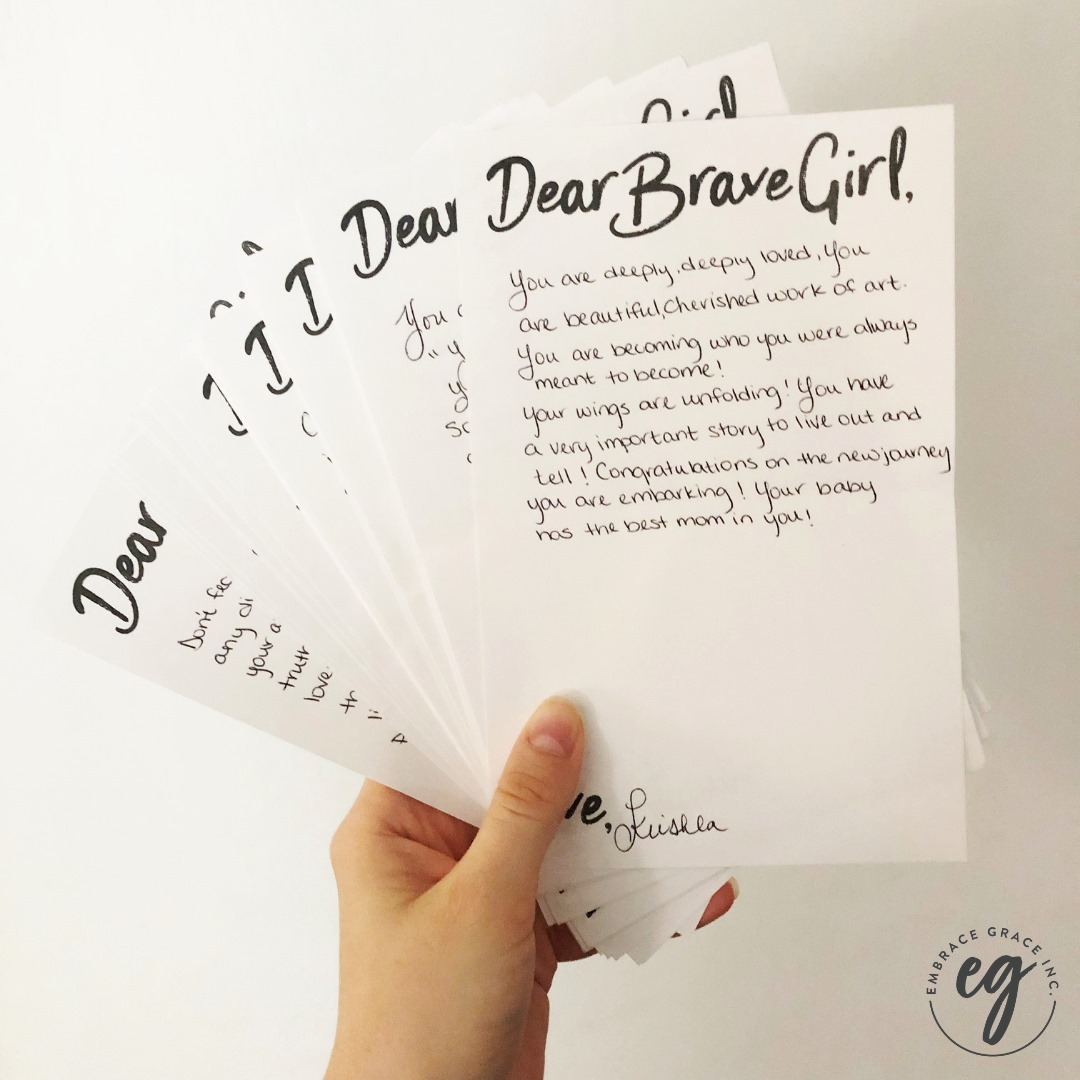 Girl,
Dear Brave Girl,
You are deeply, deeply loved, You
are beautiful, cherished work of art.
You are becoming who you were always
meant to become!
Your wings are unfolding! You have
a very important story to live out and
tell! Congratulations on the new journey
you are embarking! Your baby
has the best mom in you!
Dear
You
"y
Dear
Don't
any di
your a
love.
EMBRACE GRACE INC.
eg